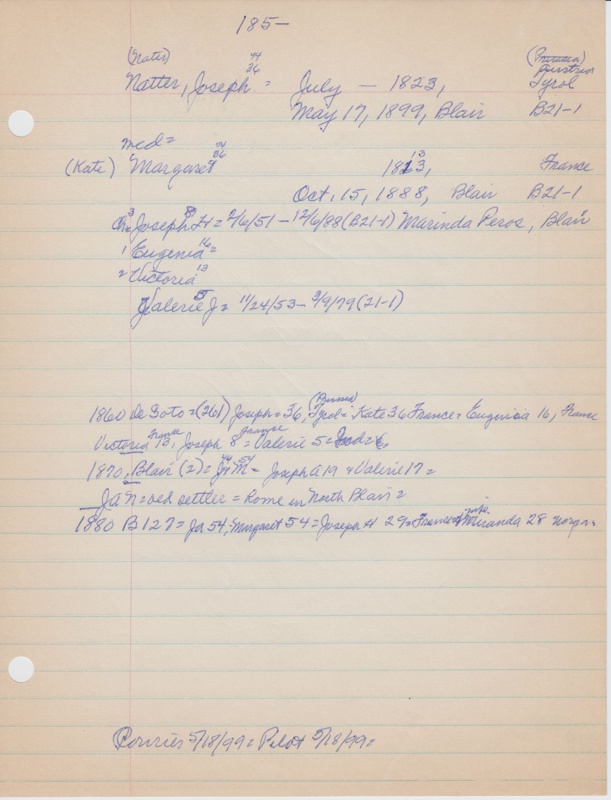 185-
(Nater) 44 (Prussia)
36 Austria
Natter, Joseph = July — 1823, Tyrol
May 17, 1899, Blair B21-1
med= 54
36 13
(Kate) Margaret 1813, France
Oct, 15, 1888, Blair B21-1
Ch= 3 Joseph 8 H = 2/6/51 - 12/6/88 (B21-1) Marinda Peros, Blair
1 Eugenia 16 =
= Victoria 13
Valerie 5 J = 11/24/53 - 9/9/79 (21-1)
1860 De Soto = (261) Joseph = 36, Tyrol = Kate 36 France = Eugenia 16, France
Victoria 13, France Joseph 8 = France Valerie 5 =
1870, Blair (2) = J 44 + M 54 = Joseph A 19 + Valerie 17 =
JaN = old settler = Rome in North Blair =
1880 B 127 = Jos 54, Margaret 54 = Joseph H 29 = France Miranda 28
Courier 5/18/99 = Pilot 5/18/99 =